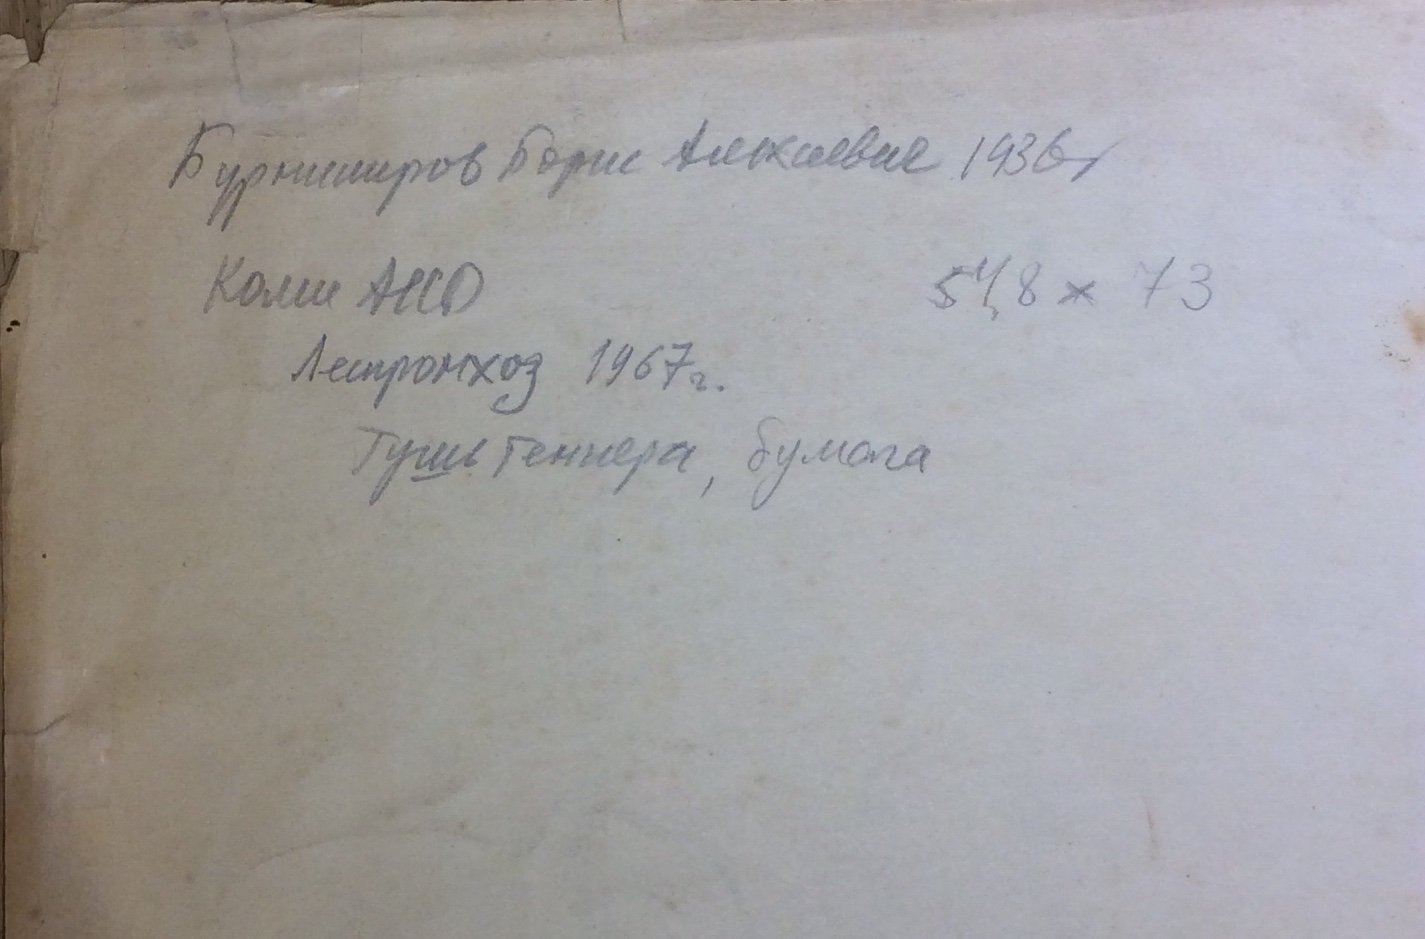 Бурмистров Борис Алексеевич 1936г
Коми АССР 54,8 х 73
Леспромхоз 1967г.
Тушь темпера, бумага